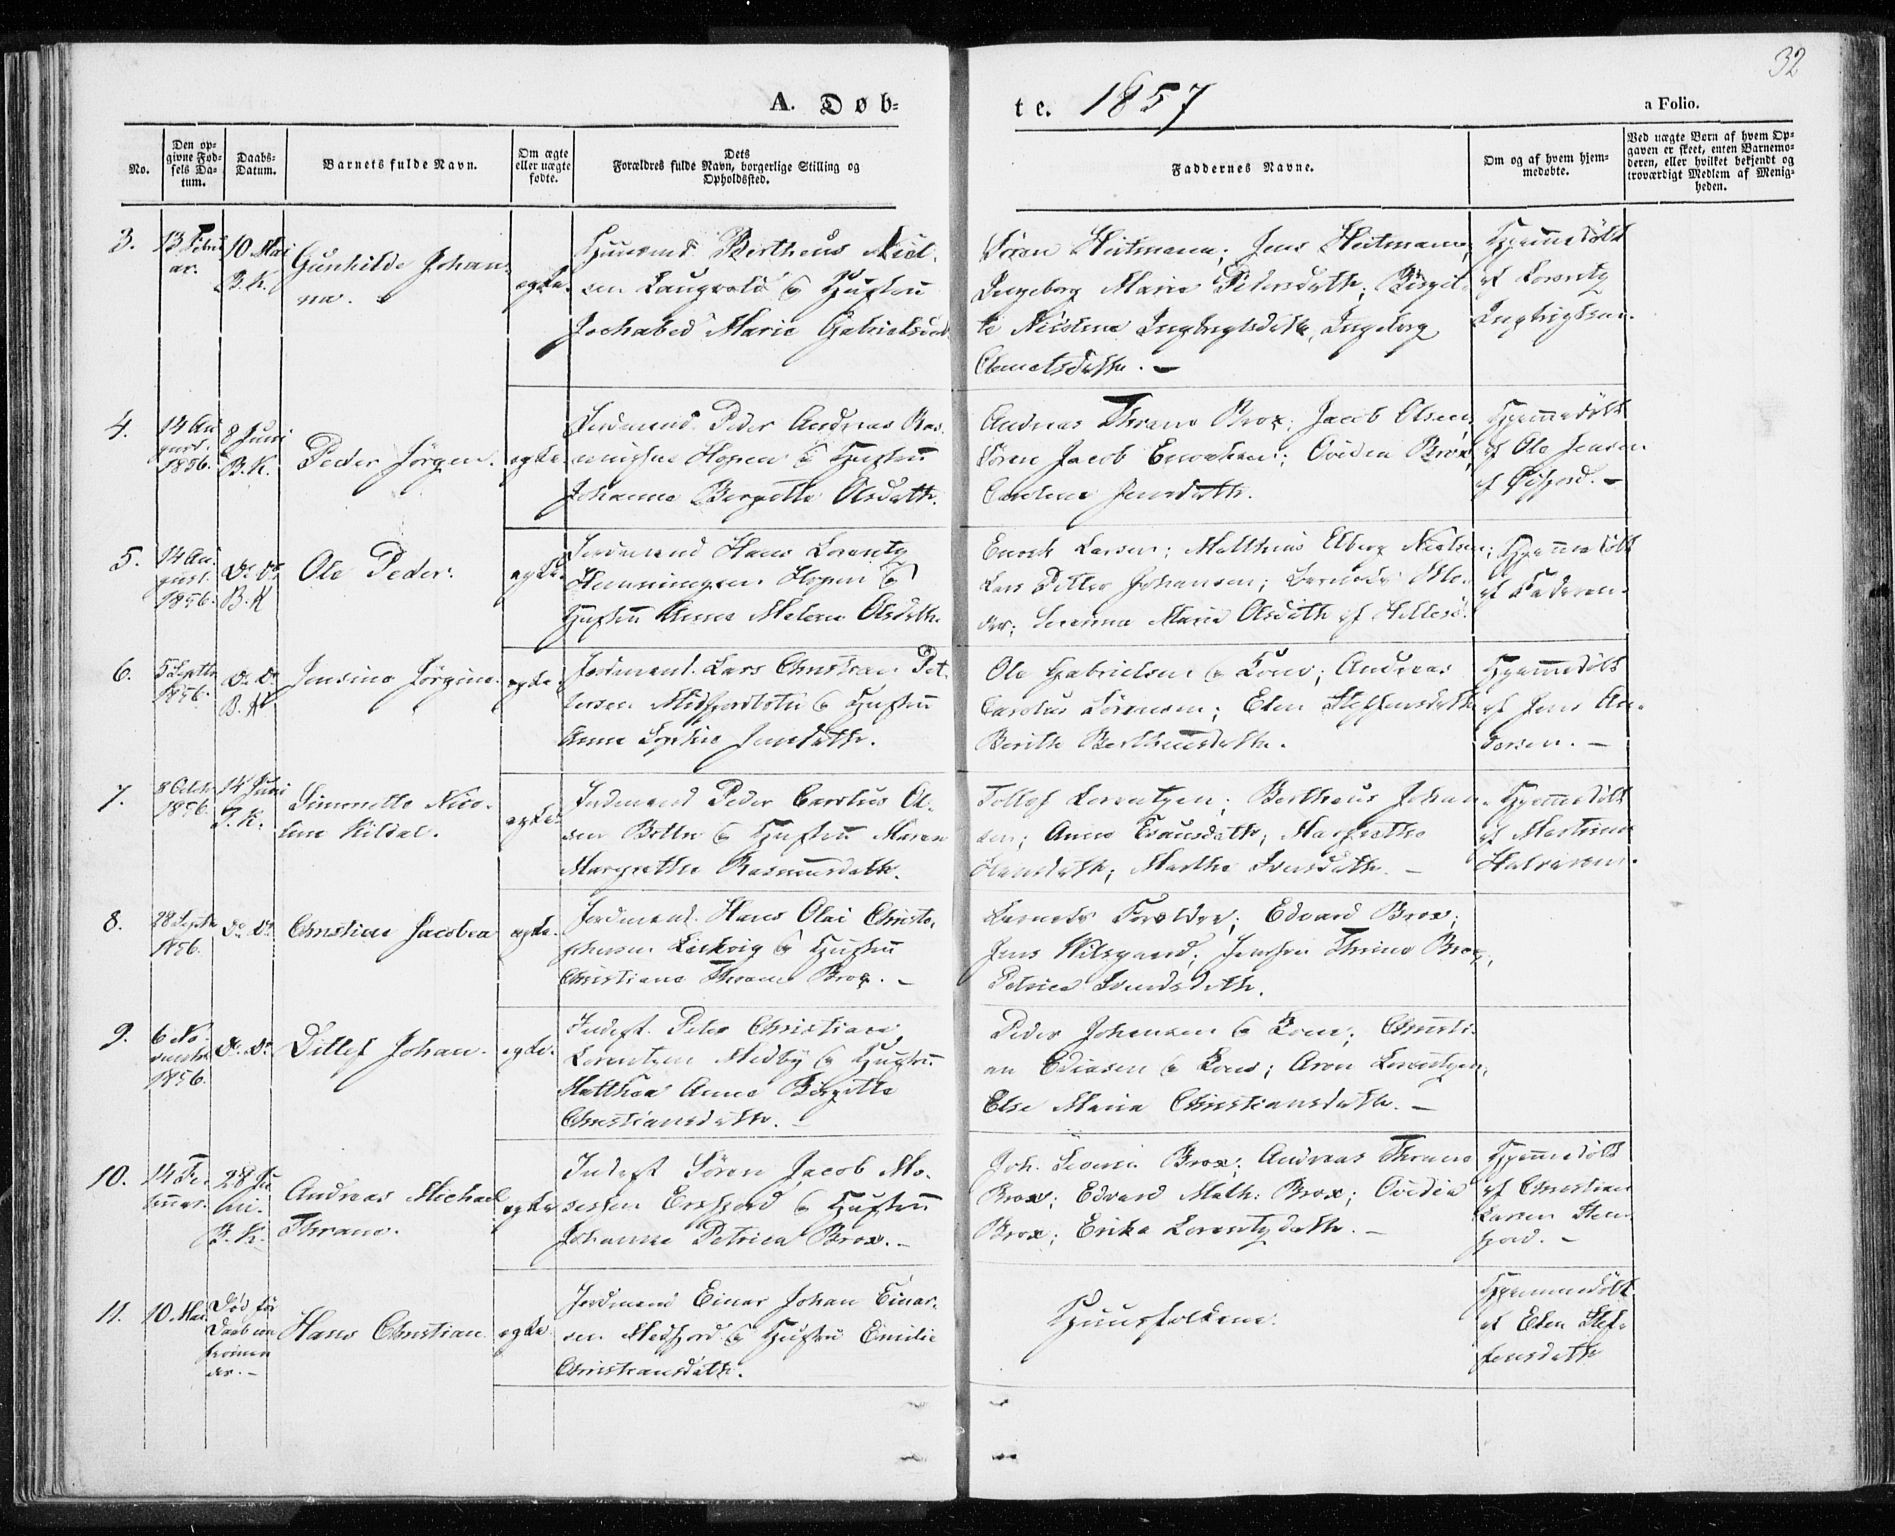 32
A. Døb=
te. 1857
a Folio.
No.
Den op=
givne Fød=
sels Da=
tum.
Daabs=
Datum.
Barnets fulde Navn.
Om ægte
eller uægte
fødte.
Dets
Forældres fulde Navn, borgerlige Stilling og
Opholdssted.
Faddernes Navne.
Om og af hvem hjem=
medøbte.
Ved uægte Børn af hvem Op=
gaven er skeet, enten Barnemo=
deren, eller hvilket bekjendt og
troværdigt Medlem af Menig=
heden.
3.
13 Febru
ar.
10 Mai
B. K.
Gunhilde Johan-
na.
ægte.
Huusmd Bertheus Niel-
sen Laugvold & Hustru
Jochabed Marie Gabrielsdat
Søren Heitmann; Jens Heitmann;
Ingeborg Marie Pedersdatte; Birgit-
te Ingebrigtsdatte, Ingeborg
Hjemmedøbt
af Lorentz
Ingbrigtsen.
4.
14 Au
gust.
1856.
8 Juni
B. K.
Peder Jørgen.
ægte
Jordmand Peder Andreas Ras-
mussen Hopen & Hustru
Johanna Bergitte Olsdatte.
Andreas Thrane Brox; Jacob Olsen
Søren Jacob Enochsen; Ovidia Brox
Jensdatte.
Hjemmedøbt
af Ole Jensen
af Øifjord.
5.
14 Au-
gust.
1856.
do. do.
B. K
Ole Peder.
ægte.
Jordmand Hans Lorentz
Henningsen Hopen &
Hustru Anne Malene Olsdatte.
Enoch Larsen; Matthias Elberg Nielsen;
Lars Petter Johansen; Barnets Mo-
der; Maria Olsdatte af Hillesø.
Hjemmedøbt
af Faderen.
6.
5 Septbr
1856.
do. do.
B. K
Jensine Jørgine.
ægte.
Jordmand. Lars Christian Pet-
tersen & Hustru
Anne Sophie Jensdatte.
Ole Gabrielsen & Kone; Andreas
Carolus Sørensen; Elen Steffensdatte
Berith Bertheusdatte.
Hjemmedøbt
af Jens An-
dersen.
7.
8 Octob.
1856.
14 Juni
T. K.
Simonette Nico-
line Kildal.
ægte.
Jordmand Peder Carolus Ol-
sen Botten & Hustru Maren
Margrethe Rasmusdatte.
Tollef Lorentzen; Bertheus Johan-
sen; Anne Margrethe
Hansdatte; Marthe Iversdatte.
Hjemmedøbt
af Martinus
Halvorsen.
8.
28 Septbr
1856.
do. do.
Christine Jacobea
ægte.
Jordmand. Hans Olai Christo-
phersen Leikvig & Hustru
Christiane Thrane Brox.
Barnets Forældre; Edvard Brox;
Jens Nilsgaard; Thrine Brox,
Petrica
9.
6 No-
vember
1856.
do. do.
Ditlef Johan.
ægte.
Inderst. Peter Christian
Lorentzen Medby & Hustru
Matthea Anna Birgitte
Christiansdatte.
Peder Johansen & Kone; Christi-
an Ediasen & Kone; Aron Lorentzen,
Else Maria Christiansdatte.
10.
14 Fe-
bruar.
28 Ju
ni.
B. K.
Andreas Michael
Thrane.
ægte
Inderst Søren Jacob Mo-
sessen & Hustru
Johanna Petrica Brox.
Joh. Brox; Andreas Thrane
Brox; Edvard Math: Brox; Ovidia
Brox; Erika Lorentzdatte.
Hjemmedøbt
af Christian
Larsen
fjord.
11.
10. Mai
Død før
Daab en
Hans Christian
ægte
Jordmand Einar Johan Einar-
sen Medfjord & Hustru Emilie
Christiansdatte.
Huusfolkene.
Hjemmedøbt
af Elen Stef-
fensdatte